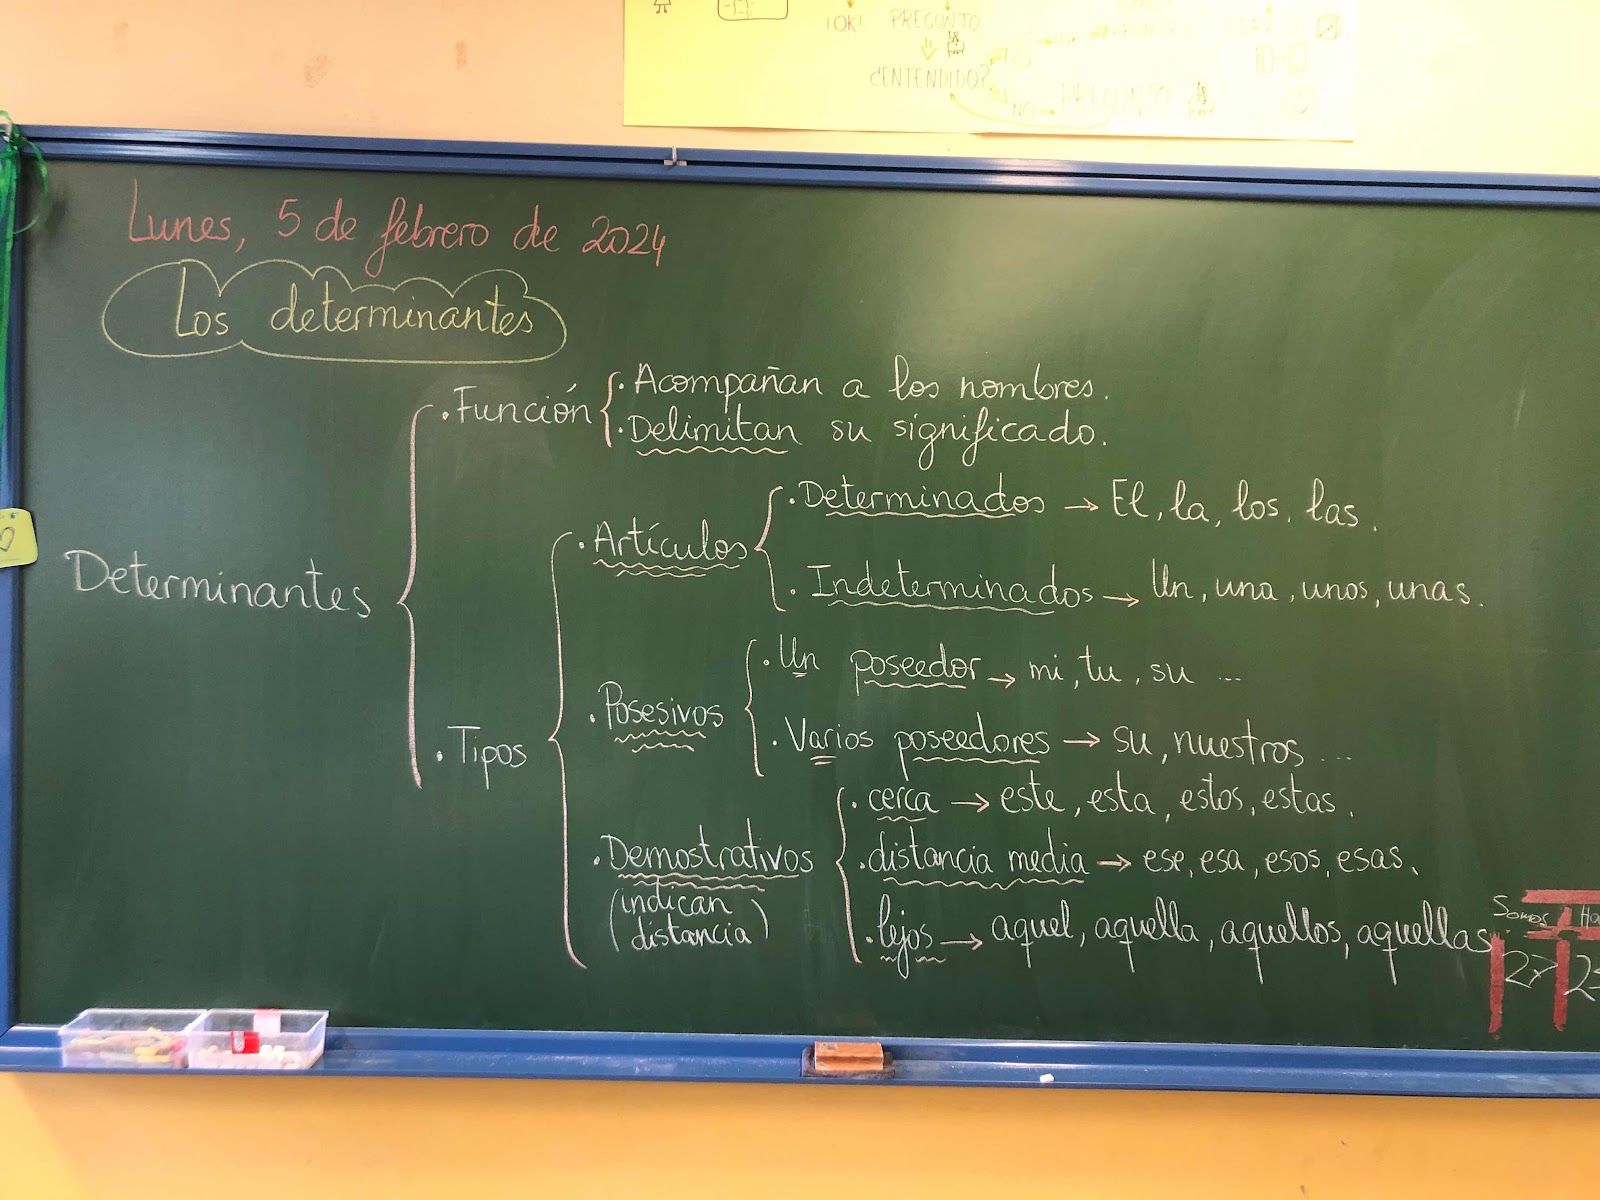 ¡OK! PREGUNTO
¿ENTENDIDO?
NO → PREGUNTO
Lunes, 5 de febrero de 2024
Los determinantes
Determinantes
· Función
· Acompañan a los nombres.
· Delimitan su significado.
· Tipos
· Artículos
· Determinados → El, la, los, las.
· Indeterminados → Un, una, unos, unas.
· Posesivos
· Un poseedor → mi, tu, su ...
· Varios poseedores → su, nuestros ...
· Demostrativos
(indican
distancia)
· cerca → este, esta, estos, estas.
· distancia media → ese, esa, esos, esas.
· lejos → aquel, aquella, aquellos, aquellas
Somos
27